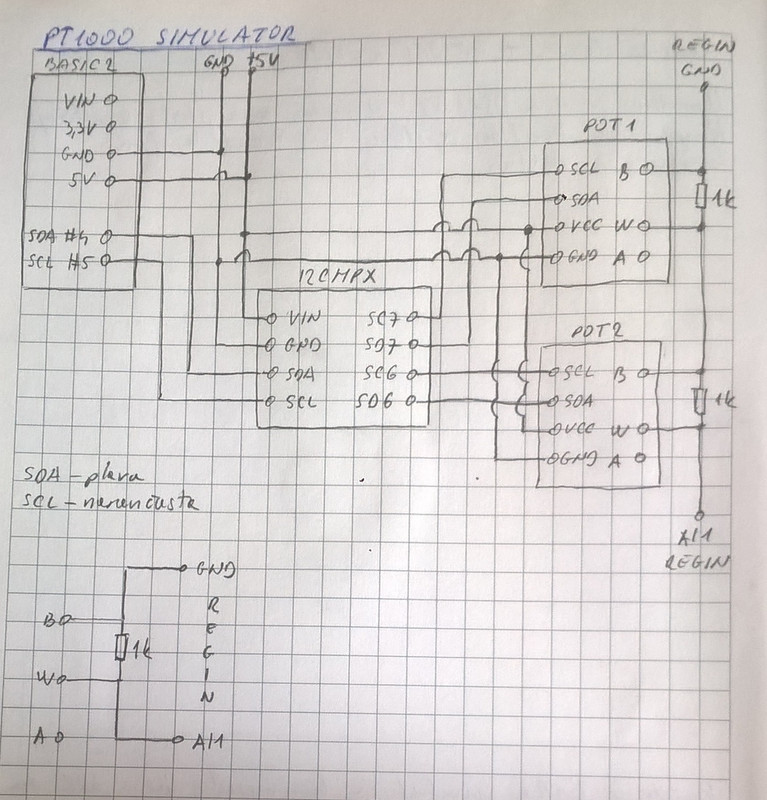 PT1000 SIMULATOR
BASIC2
GND +5V
VIN
3,3V
GND
5V
SDA #4
SCL #5
I2CMPX
VIN SC7
GND SD7
SDA SC6
SCL SD6
REGIN
GND
POT1
SCL B
SDA
VCC W
GND A
1k
POT2
SCL B
SDA
VCC W
GND A
1k
AI1
REGIN
SDA - plava
SCL - narančasta
GND
B
1k
W
A
REGIN
AI1